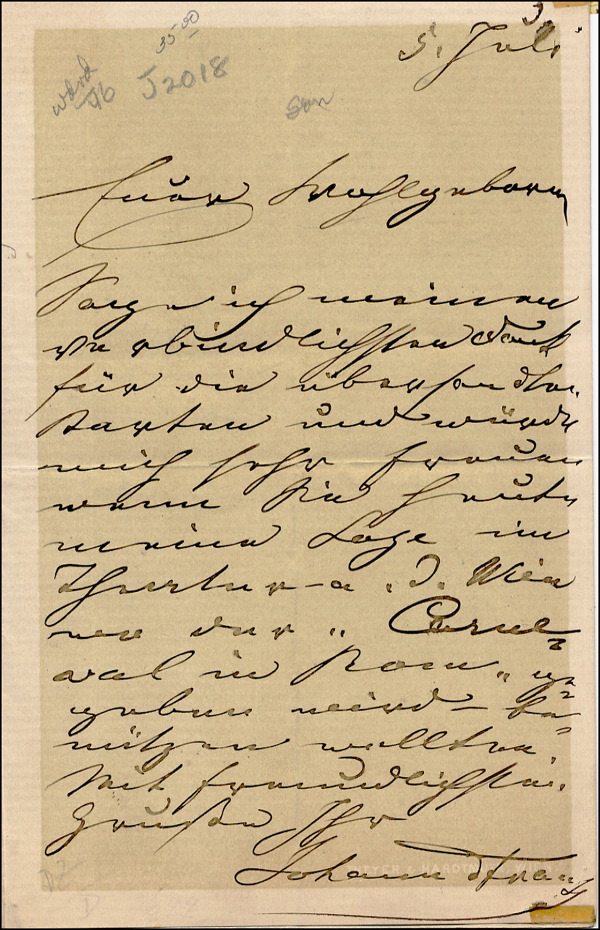 35 00
J2018
son
5. Juli
Euer Wohlgeboren
Sage ich meinen
verbindlichsten Dank
für die übersandten
Karten und würde
mich sehr freuen
wenn Sie heute
meine Loge im
Theater a. d. Wien
wo der „Carne=
val in Rom" ge=
geben wird – be=
nützen wollten
Mit freundlichsten
Gruße Ihr
Johann Strauß